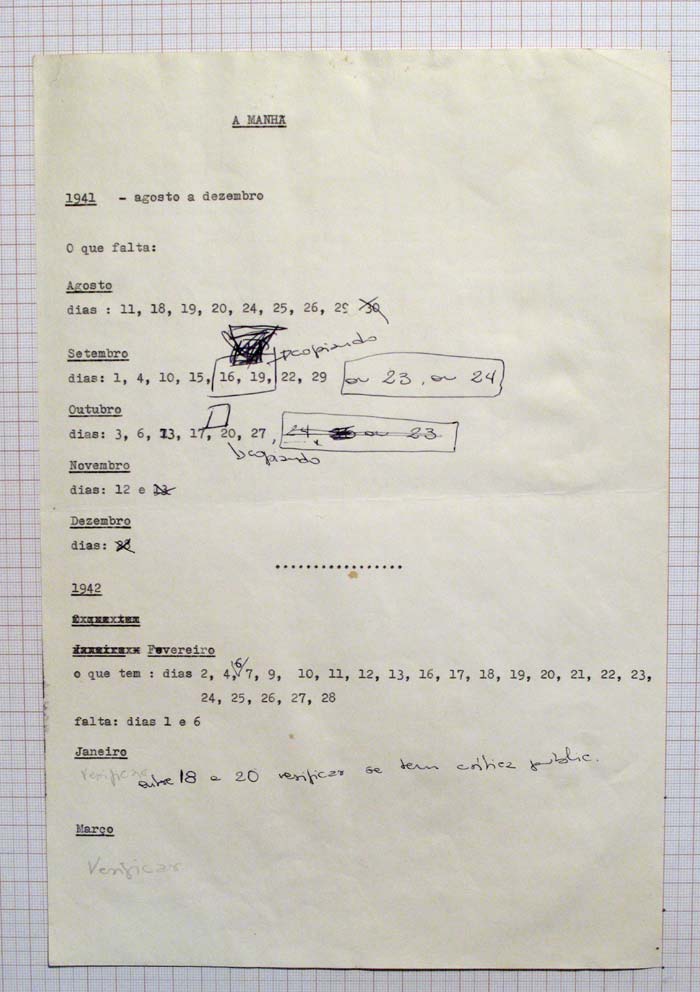 A MANHÃ
1941 - agosto a dezembro
O que falta:
Agosto
dias : 11, 18, 19, 20, 24, 25, 26, 29 30
Setembro
dias: 1, 4, 10, 15, 16, 19, 22, 29 ou 23, ou 24
Outubro
dias: 3, 6, 13, 17, 20, 27, 24, ou 23
Novembro
dias: 12 e 13
Dezembro
dias:
1942
Fevereiro
o que tem : dias 2, 4, 6 7, 9, 10, 11, 12, 13, 16, 17, 18, 19, 20, 21, 22, 23,
24, 25, 26, 27, 28
falta: dias 1 e 6
Janeiro
Verificar
entre 18 e 20 verificar se tem crítica public.
Março
Verificar